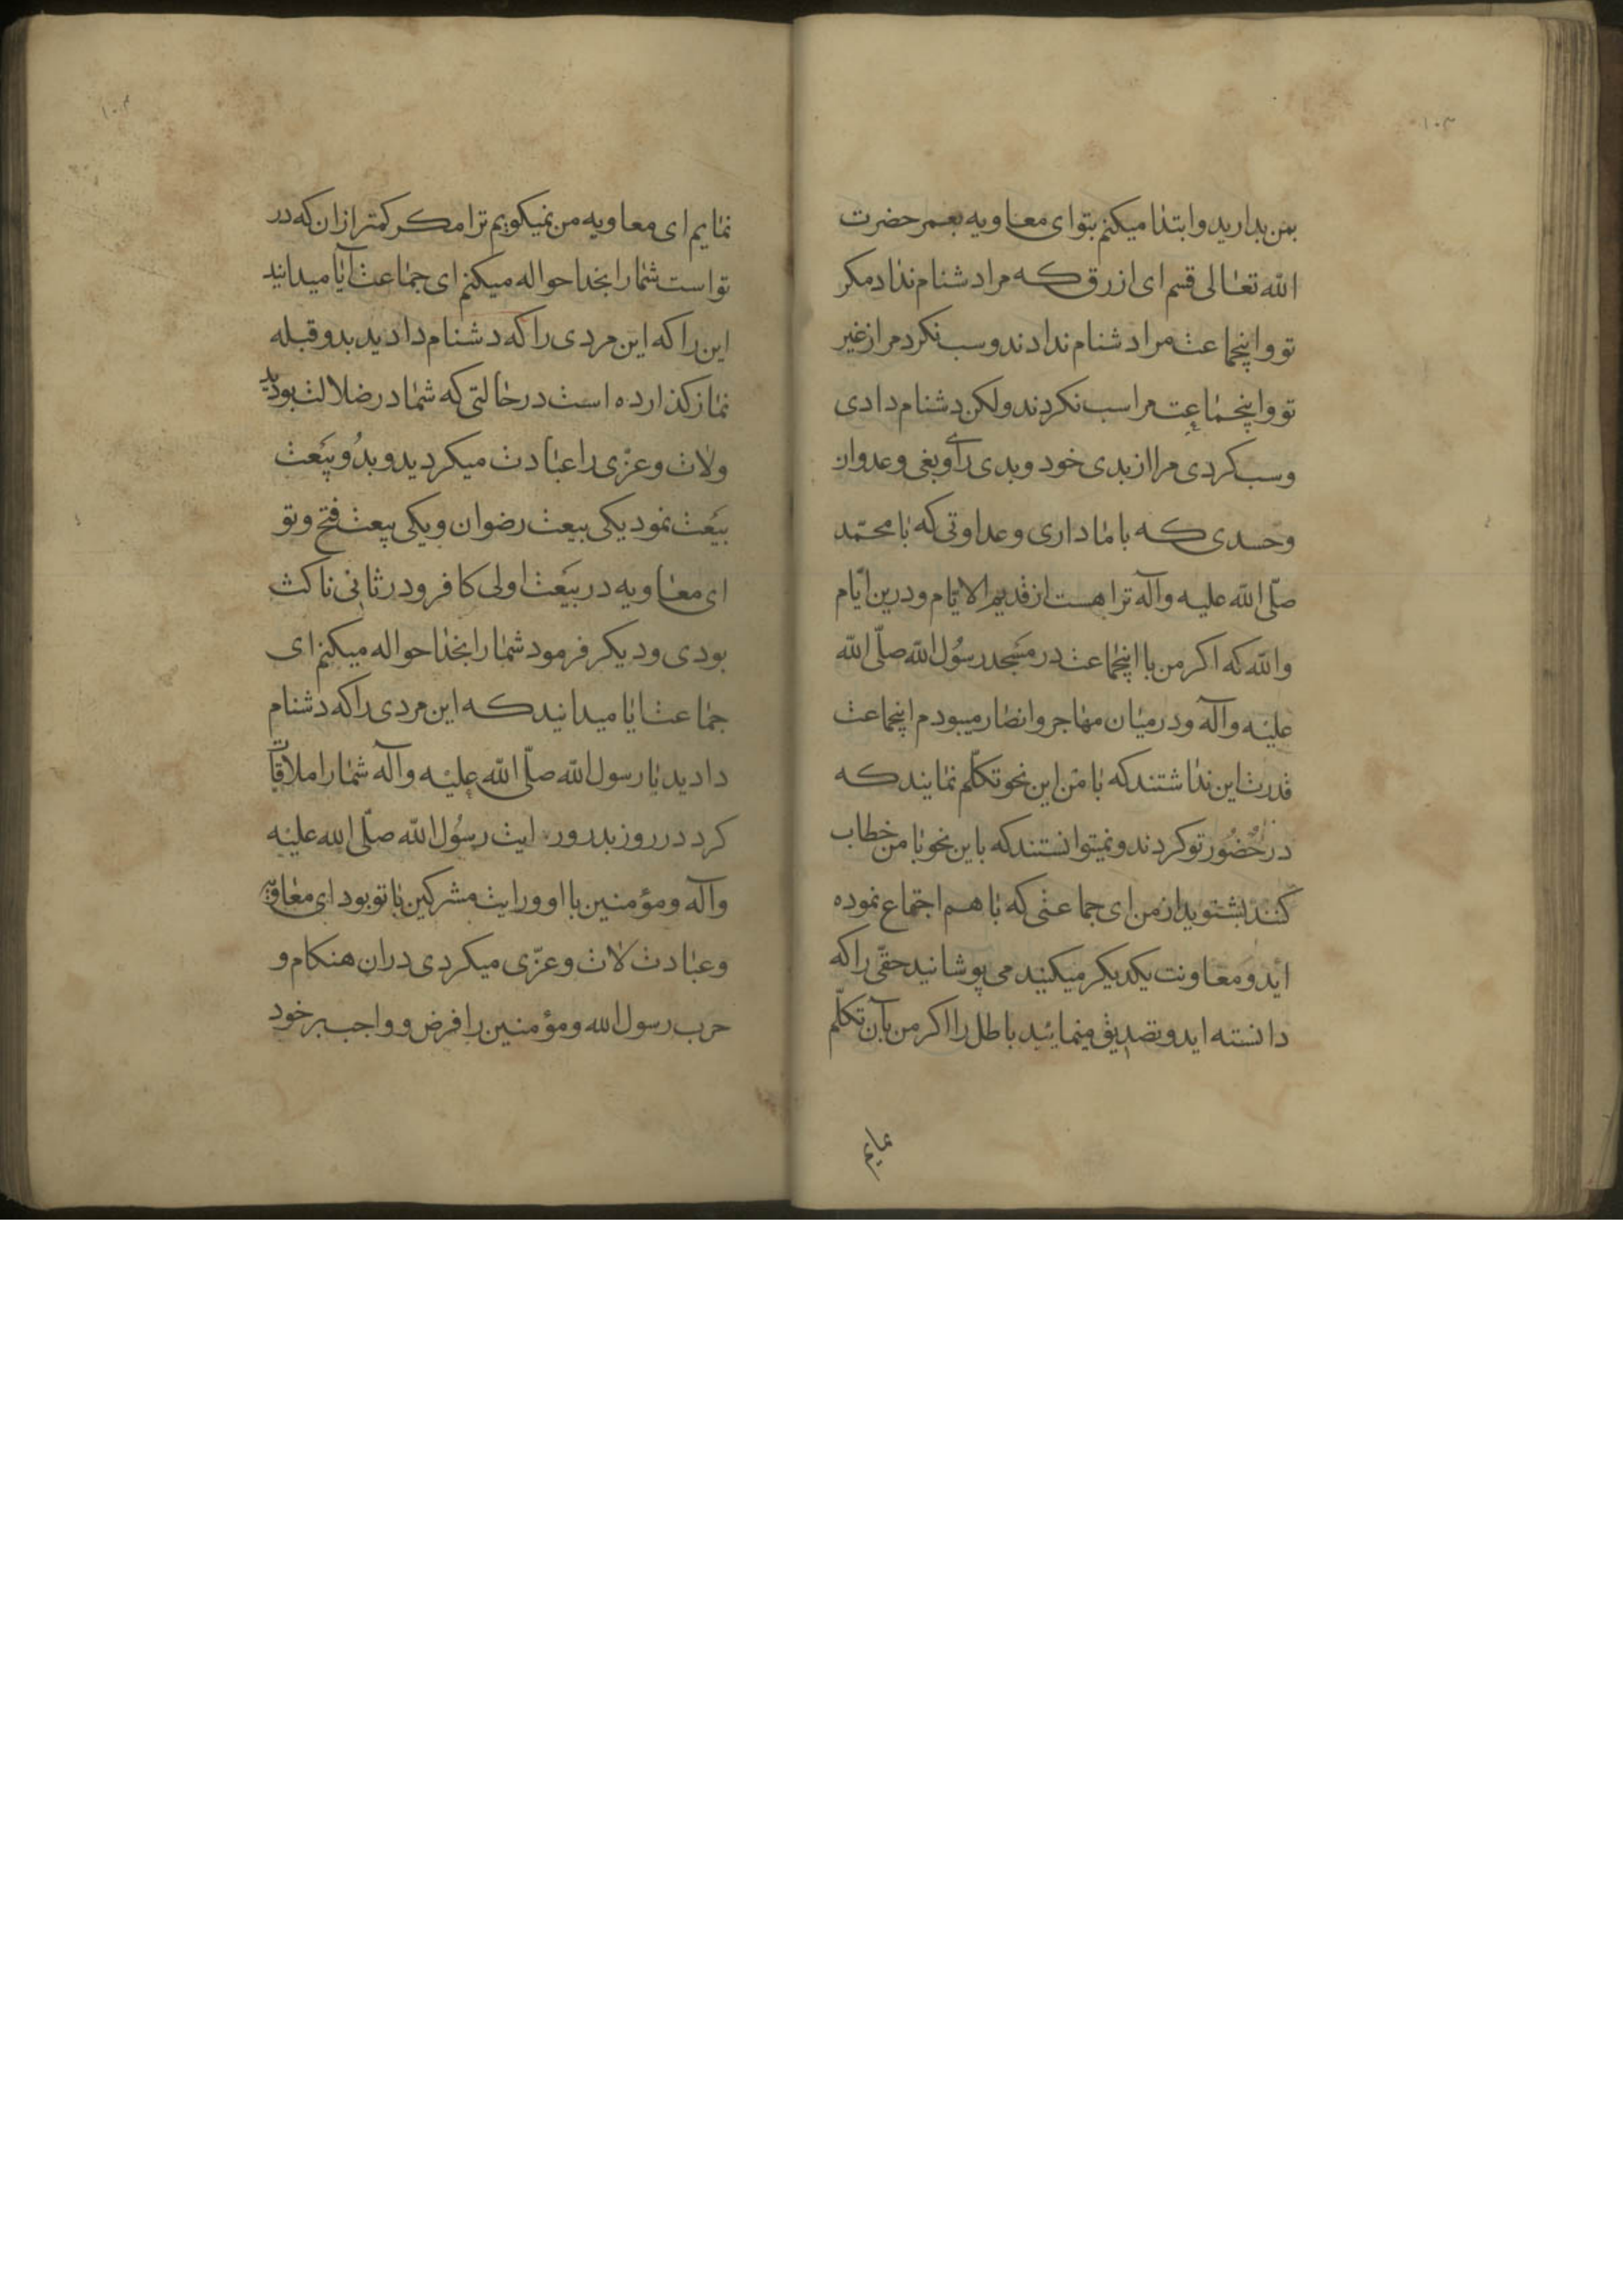 ۱۰۳
بمن بدارید وابتدا میکنم بتو ای معاویه بعمر حضرت
الله تعالی قسم ای ازرق که مرا دشنام نداد مکر
تو واینجماعت مرا دشنام ندادند وسب نکرد مرا از غیر
تو واینجماعت مرا سب نکردند ولکن دشنام دادی
وسب کردی مرا از بدی خود وبدی رأی وبغی وعدوان
وحسدی که با ما داری وعداوتی که با محمّد
صلّی الله علیه وآله ترا هست از قدیم الایام ودرین ایّام
والله که اکر من با اینجماعت در مسجد رسُول الله صلّی الله
علیه وآله ودر میان مهاجر وانصار میبودم اینجماعت
قدرت این نداشتند که با من این نحو تکلّم نمایند که
در حُضُور تو کردند ونمیتوانستند که باین نحو با من خطاب
کنند بشنوید از من ای جماعتی که با هم اجتماع نموده
اید ومعاونت یکدیکر میکنید می پوشانید حقّی را که
دانسته اید وتصدیق مینمائید باطل را اکر من بآن تکلّم
نمایم
۱۰۴
نمایم ای معاویه من نمیکویم ترا مکر کمتر از ان که در
تو است شما را بخدا حواله میکنم ای جماعت آیا میدانید
این را که این مردی را که دشنام دادید بدو قبله
نماز کذارده است در حالتی که شما در ضلالت بودید
ولات وعزّی را عبادت میکردید وبدُو بیَعت
بیَعت نمود یکی بیعت رضوان ویکی بیعت فتح وتو
ای معاویه در بیَعت اولی کافر ودر ثانی ناکث
بودی ودیکر فرمود شما را بخدا حواله میکنم ای
جماعت ایا میدانید که این مردی را که دشنام
دادید با رسول الله صلّی الله علیه وآله شما را ملاقات
کرد در روز بدر ورایت رسُول الله صلّی الله علیه
وآله ومؤمنین با او ورایت مشرکین با تو بود ای معاویه
وعبادت لات وعزّی میکردی دران هنکام و
حرب رسول الله ومؤمنین را فرض وواجب بر خود